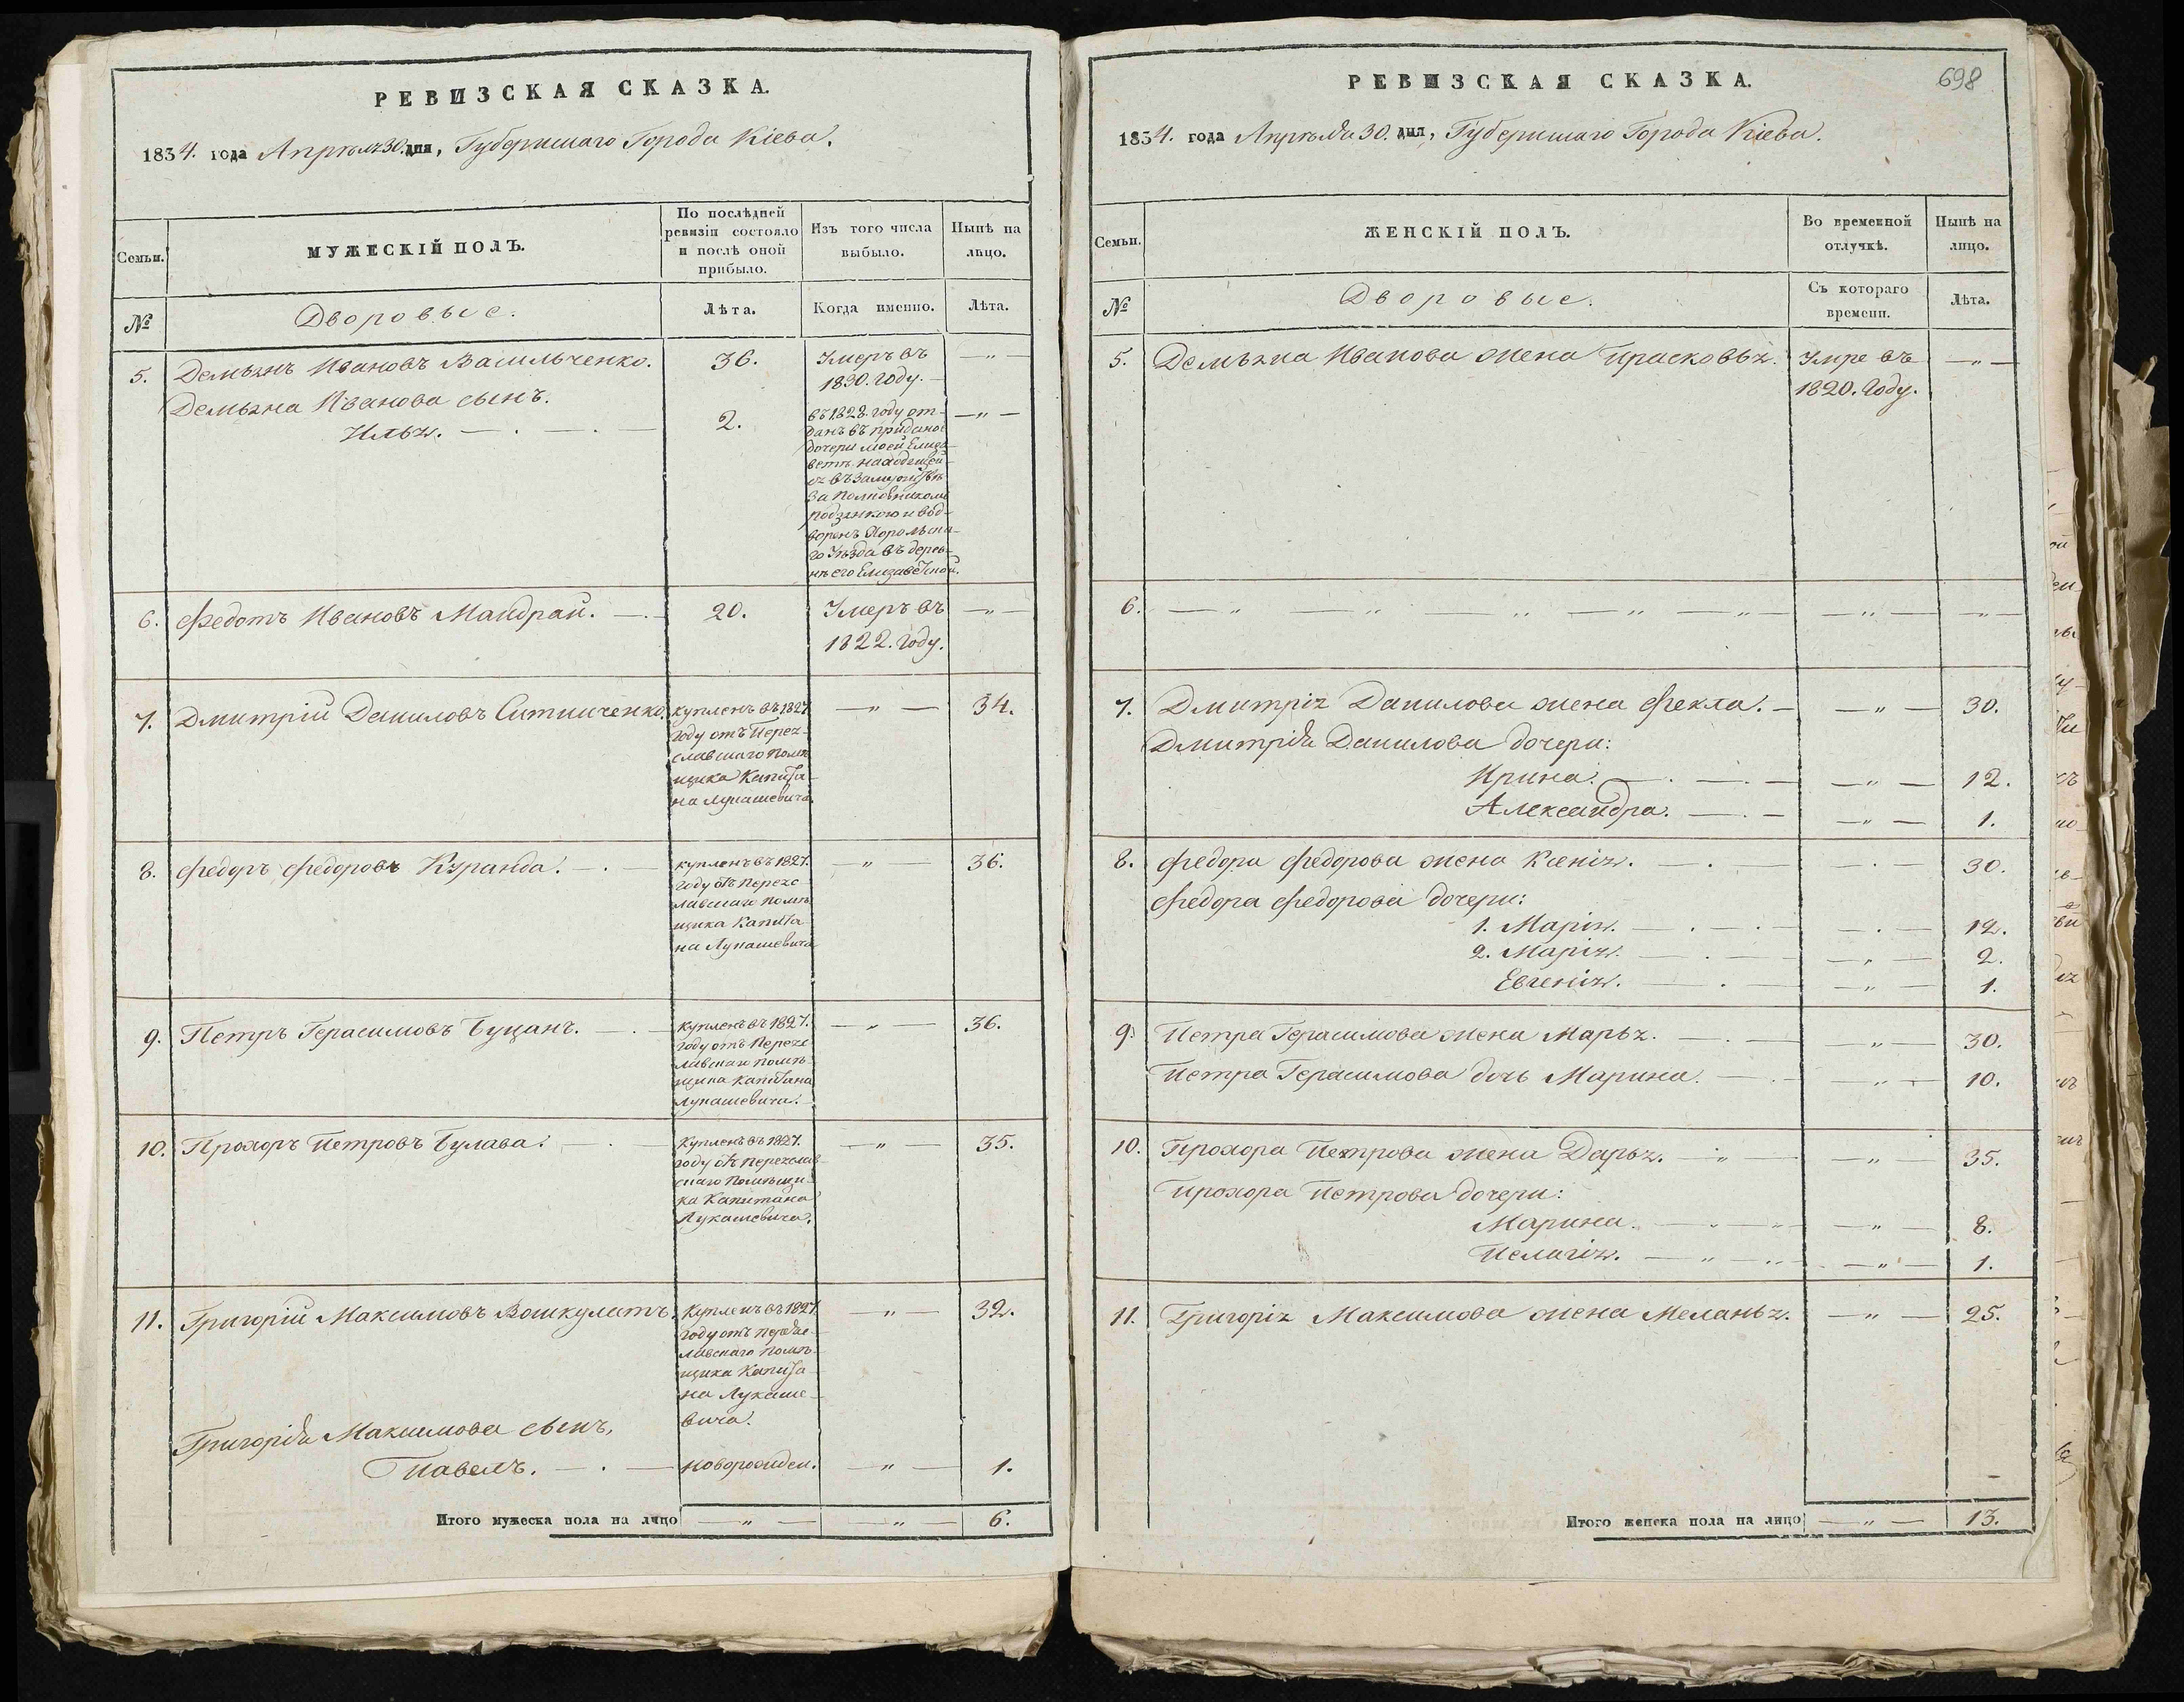 РЕВИЗСКАЯ СКАЗКА.
1834. года Апрѣля 30. дня, Губернскаго Города Кіева.
Семьи.
МУЖЕСКІЙ ПОЛЪ.
По послѣдней
ревизіи состояло
и послѣ оной
прибыло.
Изъ того числа
выбыло.
Нынѣ на
лицо.
№
Дворовые.
Лѣта.
Когда именно.
Лѣта.
5. Демьянъ Ивановъ Васильченко. 36. Умеръ въ — " —
1830. году. —
Демьяна Иванова сынъ.
Илья. — . — . — 2. въ 1828. году от- — " —
данъ въ приданое
дочери моей Елиза-
ветѣ находящей-
ся въ замужствѣ
за Полковникомъ
Родзянкою и вод-
воренъ Хорольска-
го Уѣзда въ дерев-
нѣ его Елизаветиной.
6. Федотъ Ивановъ Мандрай. — . — 20. Умеръ въ — " —
1822. году.
7. Дмитрій Даниловъ Ситниченко. купленъ въ 1827. — " — 34.
году отъ Перея-
славскаго помѣ-
щика Капита-
на Лукашевича.
8. Федоръ Федоровъ Куранда. — . — купленъ въ 1827. — " — 36.
году отъ Переяс-
лавскаго помѣ-
щика Капита-
на Лукашевича
9. Петръ Герасимовъ Буцанъ. — . — купленъ въ 1827. — " — 36.
году отъ Переяс-
лавскаго помѣ-
щика Капитана
Лукашевича.
10. Прохоръ Петровъ Булава. — . — Купленъ въ 1827. — " — 35.
году отъ Переяслав-
скаго Помѣщи-
ка Капитана
Лукашевича.
11. Григорій Максимовъ Вошкулатъ. Купленъ въ 1827. — " — 32.
году отъ Переяс-
лавскаго помѣ-
щика Капита-
на Лукаше-
вича.
Григорія Максимова сынъ,
Павелъ. — . — новорожден. — " — 1.
Итого мужеска пола на лицо — " — — " — 6.
698
РЕВИЗСКАЯ СКАЗКА.
1834. года Апрѣля 30. дня, Губернскаго Города Кіева.
Семьи.
ЖЕНСКІЙ ПОЛЪ.
Во временной
отлучкѣ.
Нынѣ на
лицо.
№
Дворовые.
Съ котораго
времени.
Лѣта.
5. Демьяна Иванова жена Прасковья. Умре въ — " —
1820. году.
6. — " — " — " — " — " — " — — " —
7. Дмитрія Данилова жена Фекла. — — " — 30.
Дмитрія Данилова дочери:
Ирина. — . — . — — " — 12.
Александра. — . — — " — 1.
8. Федора Федорова жена Ксенія. — . — — . — 30.
Федора Федорова дочери:
1. Марія. — . — . — — . — 12.
2. Марія. — . — — " — 2.
Евгенія. — . — — " — 1.
9. Петра Герасимова жена Марья. — . — — " — 30.
Петра Герасимова дочь Марина. — . — — " — 10.
10. Прохора Петрова жена Дарья. — " — — " — 35.
Прохора Петрова дочери:
Марина. — " — " — — " — 8.
Пелагія. — " — " — — " — 1.
11. Григорія Максимова жена Меланья. — " — 25.
Итого женска пола на лицо — " — 13.